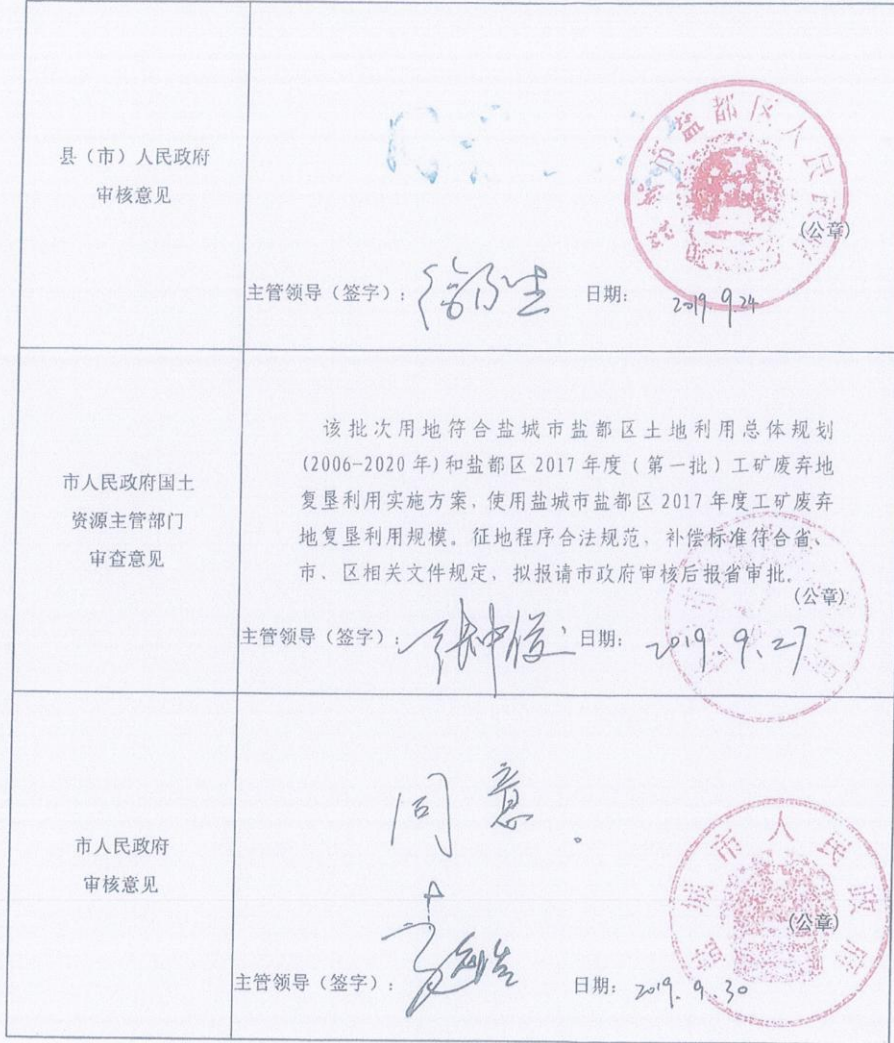 县（市）人民政府
审核意见
盐城市盐都区人民政府
(公章)
主管领导（签字）：
日期：
2019.9.24
市人民政府国土
资源主管部门
审查意见
该批次用地符合盐城市盐都区土地利用总体规划
(2006-2020 年)和盐都区 2017 年度（第一批）工矿废弃地
复垦利用实施方案，使用盐城市盐都区 2017 年度工矿废弃
地复垦利用规模。征地程序合法规范，补偿标准符合省、
市、区相关文件规定，拟报请市政府审核后报省审批。
(公章)
主管领导（签字）：
日期：
2019.9.27
市人民政府
审核意见
同意。
盐城市人民政府
(公章)
主管领导（签字）：
日期：
2019.9.30